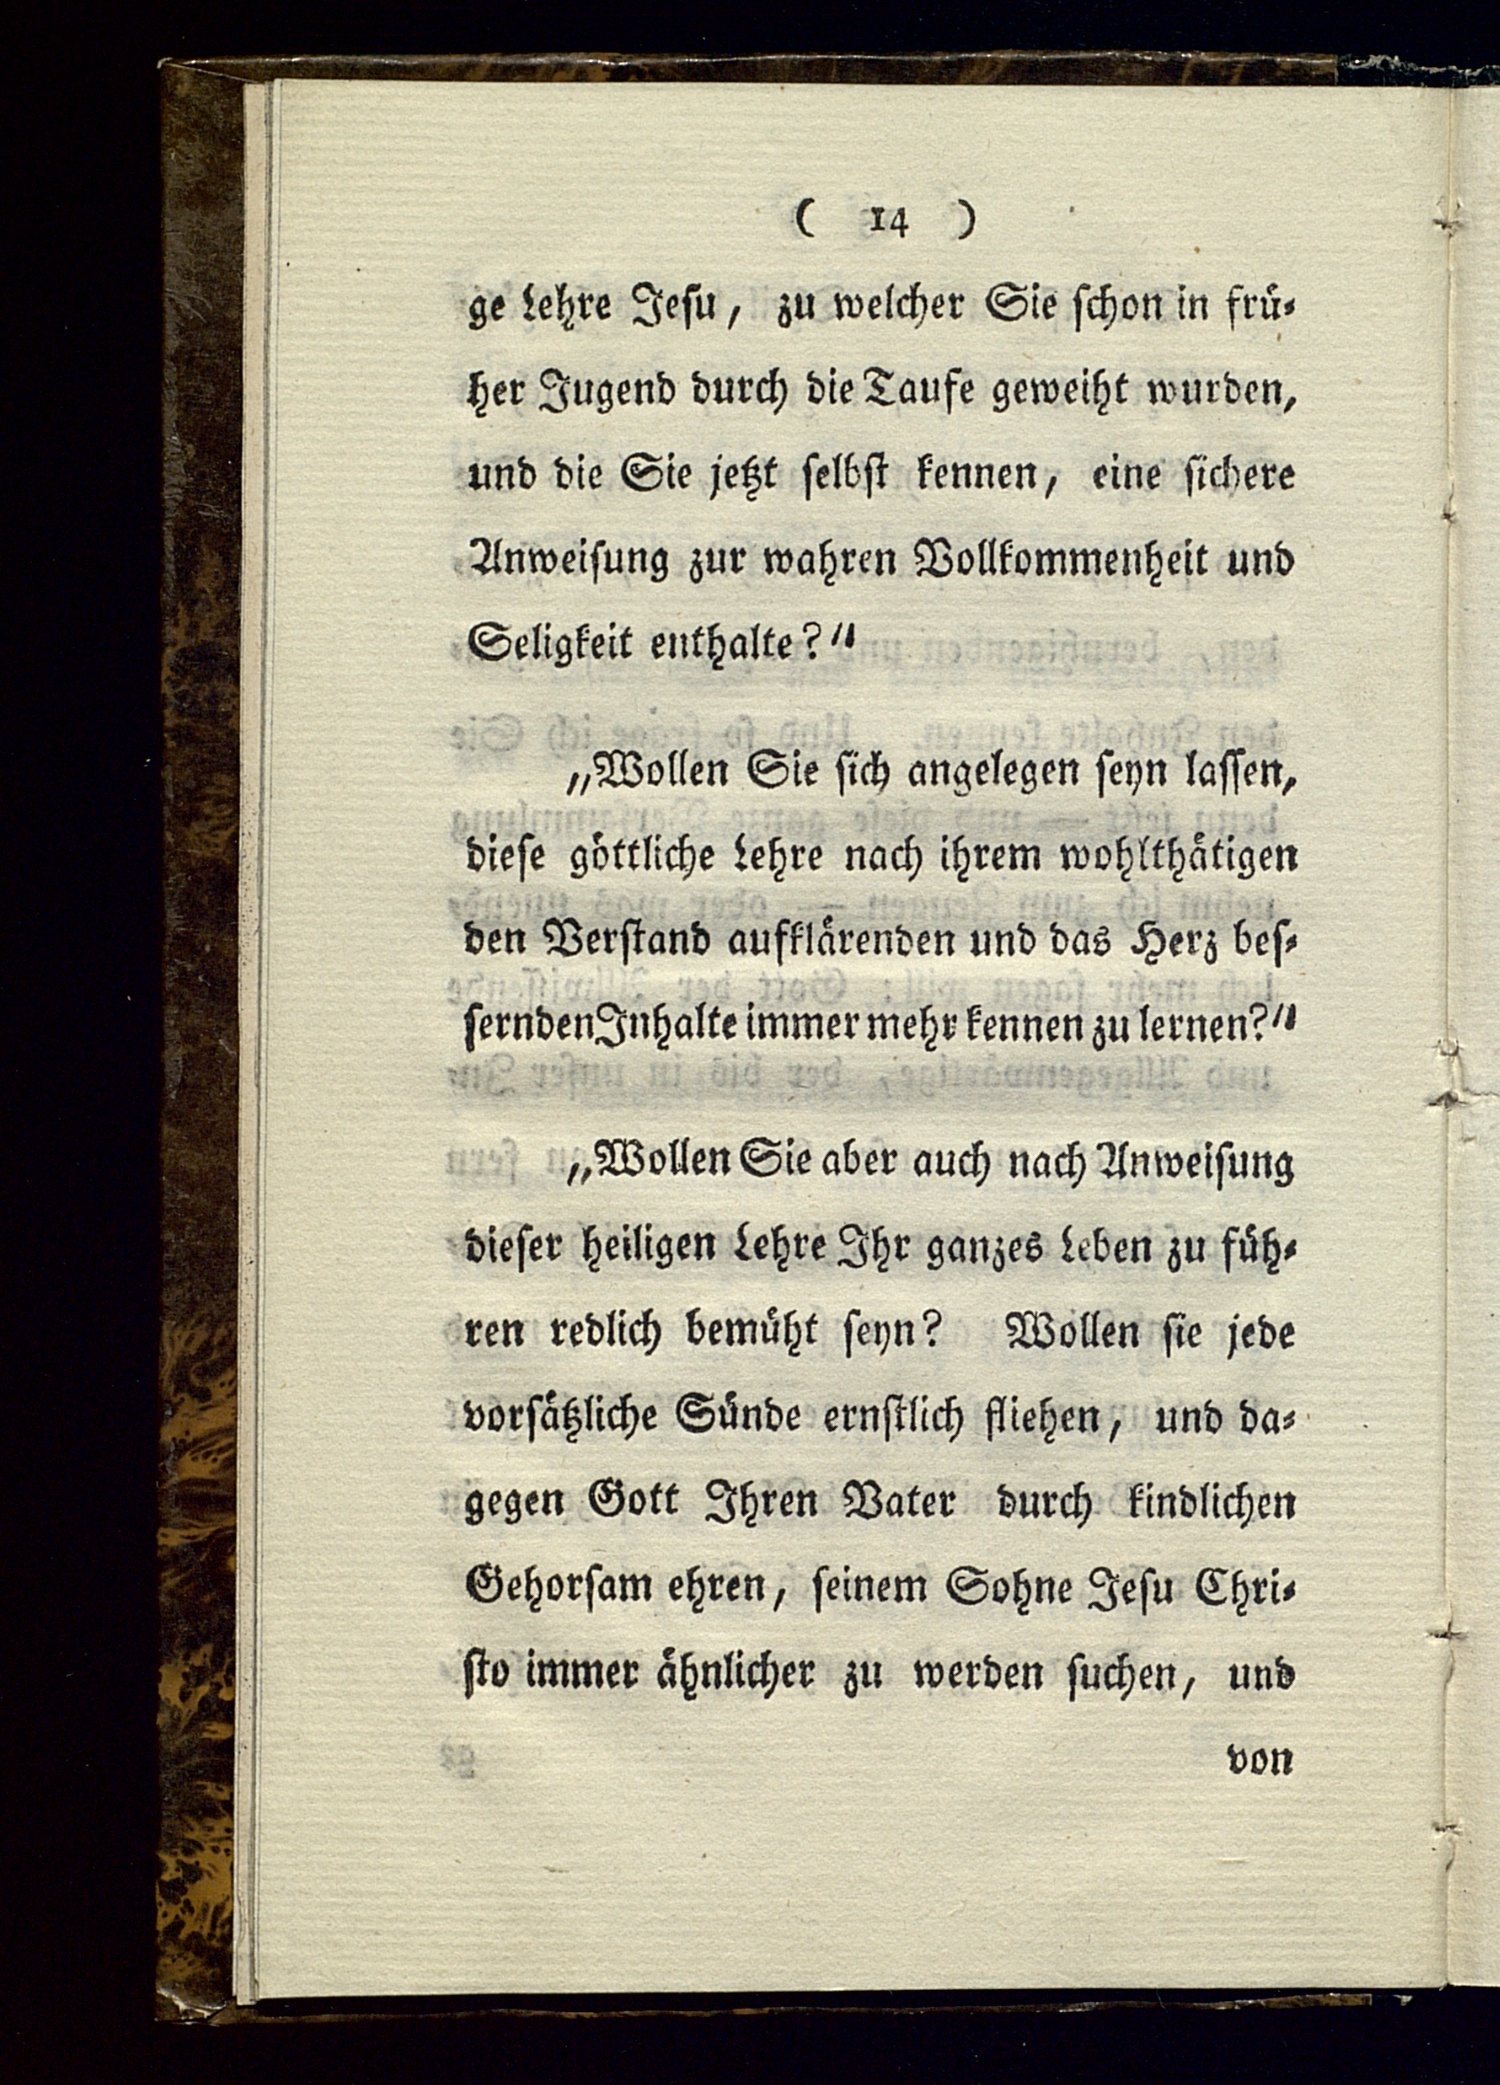 ( 14 )
ge Lehre Jesu, zu welcher Sie schon in frü-
her Jugend durch die Taufe geweiht wurden,
und die Sie jetzt selbst kennen, eine sichere
Anweisung zur wahren Vollkommenheit und
Seligkeit enthalte?“
„Wollen Sie sich angelegen seyn lassen,
diese göttliche Lehre nach ihrem wohlthätigen
den Verstand aufklärenden und das Herz bes-
sernden Inhalte immer mehr kennen zu lernen?“
„Wollen Sie aber auch nach Anweisung
dieser heiligen Lehre Ihr ganzes Leben zu füh-
ren redlich bemüht seyn? Wollen sie jede
vorsätzliche Sünde ernstlich fliehen, und da-
gegen Gott Ihren Vater durch kindlichen
Gehorsam ehren, seinem Sohne Jesu Chri-
sto immer ähnlicher zu werden suchen, und
von